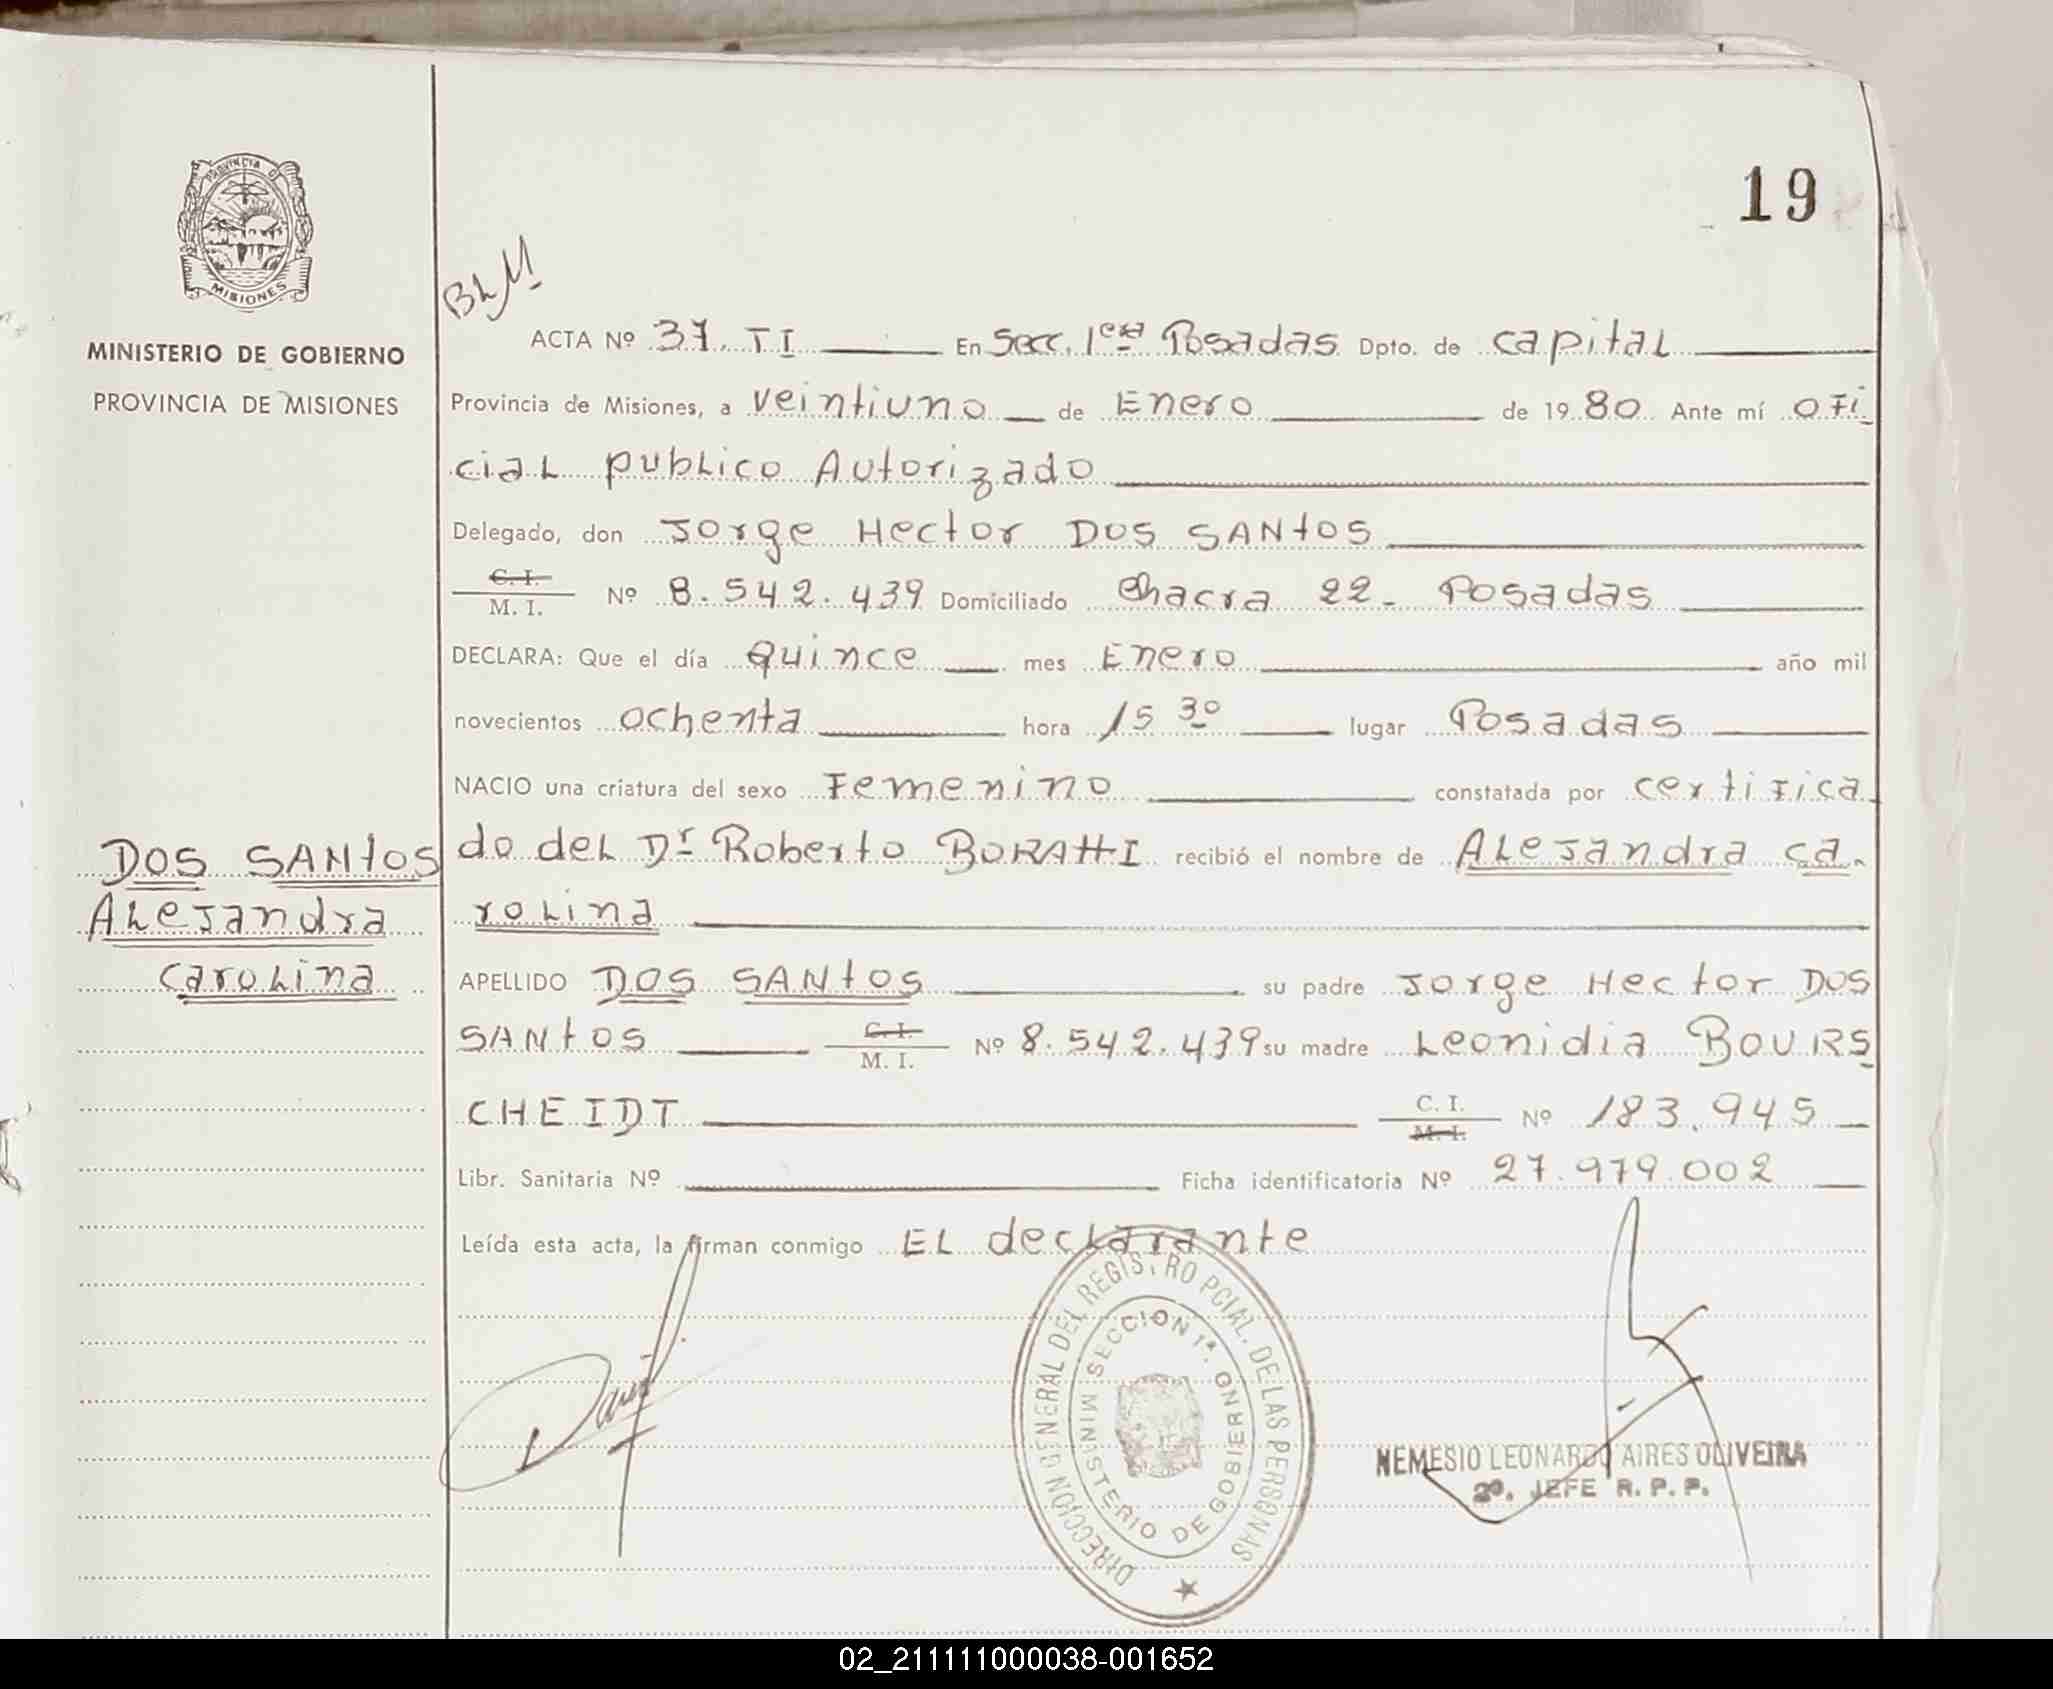 19
PROVINCIA D
MISIONES
MINISTERIO DE GOBIERNO
PROVINCIA DE MISIONES
BLM
ACTA Nº 37. TI En Secc. 1era Posadas Dpto. de capital
Provincia de Misiones, a veintiuno de Enero de 19 80 Ante mí ofi
cial publico Autorizado
Delegado, don Jorge Hector DOS SANtOS
C. I. / M. I. Nº 8.542.439 Domiciliado Chacra 22 - Posadas
DECLARA: Que el día quince mes Enero año mil
novecientos ochenta hora 15 30 lugar Posadas
NACIO una criatura del sexo Femenino constatada por certifica
do del Dr Roberto BORAttI recibió el nombre de Alejandra ca-
rolina
DOS SANtOS
Alejandra
carolina
APELLIDO DOS SANtOS su padre Jorge Hector DOS
SANtOS C. I. / M. I. Nº 8.542.439 su madre Leonidia BOURS
CHEIDT C. I. / M. I. Nº 183.945
Libr. Sanitaria Nº Ficha identificatoria Nº 27.979.002
Leída esta acta, la firman conmigo El declarante
DIRECCION GENERAL DEL REGISTRO PCIAL. DE LAS PERSONAS
MINISTERIO DE GOBIERNO
SECCION 1ª.
NEMESIO LEONARDO AIRES OLIVEIRA
2º. JEFE R. P. P.
02_211111000038-001652